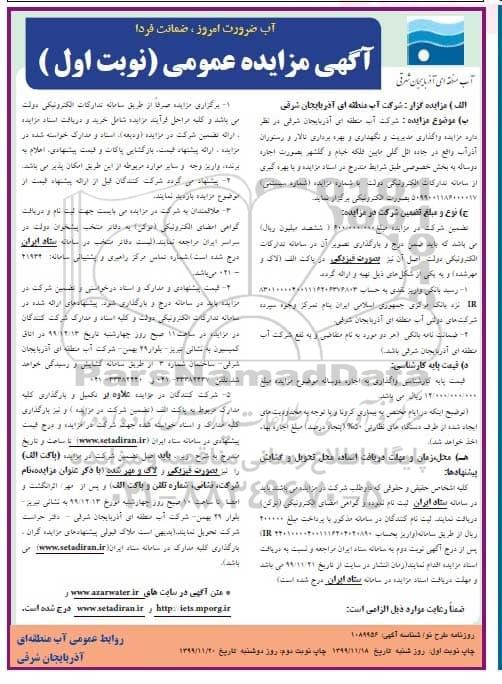 آب ضرورت امروز ، ضمانت فردا
آگهی مزایده عمومی (نوبت اول )
آب منطقه ای آذربایجان شرقی
الف ) مزایده گزار : شرکت آب منطقه ای آذربایجان شرقی
ب) موضوع مزایده : شرکت آب منطقه ای آذربایجان شرقی در نظر
دارد مزایده واگذاری مدیریت و نگهداری و بهره برداری تالار و رستوران
آذرآب واقع در جاده ائل گلی مابین فلکه خیام و گلشهر بصورت اجاره
دوساله به بخش خصوصی طبق شرایط مندرج در اسناد مزایده و با بهره گیری
از سامانه تدارکات الکترونیکی دولت با شماره مزایده (شماره سیستمی)
بصورت الکترونیکی برگزار نماید.
ج) نوع و مبلغ تضمین شرکت در مزایده:
تضمین شرکت در مزایده مبلغ ۶۰۰/۰۰۰/۰۰۰ ( ششصد میلیون ریال)
می باشد که باید ضمن درج و بارگذاری تصویر آن در سامانه تدارکات
الکترونیکی دولت اصل آن نیز بصورت فیزیکی در پاکت الف (لاک و
مهرشده) و به یکی از شکل های ذیل تهیه و ارائه گردد.
۱- رسید بانکی واریز نقدی به حساب
IR نزد بانک مرکزی جمهوری اسلامی ایران بنام تمرکز وجوه سپرده
شرکت‌های دولتی آب منطقه ای آذربایجان شرقی.
۲-ضمانت نامه بانکی (هر دو مورد به نام متقاضی و به نفع شرکت آب
منطقه ای آذربایجان شرقی باشد.)
د) قیمت پایه کارشناسی:
قیمت پایه کارشناسی واگذاری به اجاره دوساله موضوع مزایده مبلغ
۱۲/۰۰۰/۰۰۰/۰۰۰ ریال می باشد.
(توضیح اینکه در ایام مختص به بیماری کرونا و با توجه به محدودیت های
ایجاد شده از طرف دستگاه های نظارتی ۵۰% (پنجاه درصد) مبلغ اجاره بهاء
اخذ خواهد شد).
هـ) محل،زمان و مهلت دریافت اسناد، محل تحویل و گشایش
پیشنهادها:
کلیه اشخاص حقیقی و حقوقی که داوطلب شرکت در مزایده می باشند باید
در سامانه ستاد ایران ثبت نام نموده و گواهی امضای الکترونیکی (توکن)
دریافت نمایند. ثبت نام کنندگان در سامانه مذکور با پرداخت مبلغ ۴۰۰۰۰۰
ریال از طریق سامانه(واریز بحساب IR)
پس از درج آگهی نوبت دوم به سامانه ستاد ایران مراجعه و نسبت به دریافت
اسناد مزایده اقدام نمایند(زمان انتشار در سایت از تاریخ ۹۹/۱۱/۲۱ می باشد
و مهلت دریافت اسناد مزایده در سامانه ستاد ایران درج شده است)
ضمناً رعایت موارد ذیل الزامی است:
۱- برگزاری مزایده صرفاً از طریق سامانه تدارکات الکترونیکی دولت
می باشد و کلیه مراحل فرآیند مزایده شامل خرید و دریافت اسناد مزایده
، ارائه تضمین شرکت در مزایده (ودیعه)، اسناد و مدارک خواسته شده در
مزایده ، ارائه پیشنهاد قیمت، بازگشایی پاکات و قیمت پیشنهادی، اعلام به
برنده، واریز وجه و سایر موارد مربوطه از این طریق امکان پذیر می باشد.
۲- پیشنهاد می گردد شرکت کنندگان قبل از ارائه پیشنهاد قیمت از
موضوع مزایده بازدید نمایند.
۳- علاقمندان به شرکت در مزایده می بایست جهت ثبت نام و دریافت
گواهی امضای الکترونیکی (توکن) به دفاتر منتخب پیشخوان دولت در
سراسر ایران مراجعه نمایند.(لیست دفاتر منتخب در سامانه ستاد ایران
درج شده است).شماره تماس مرکز راهبری و پشتیبانی سامانه: ۴۱۹۳۴
- ۰۲۱ می‌باشد.
۴- قیمت پیشنهادی و مدارک و اسناد درخواستی و تضمین شرکت در
مزایده باید در سامانه درج و بارگذاری شود. پیشنهادهای ارائه شده در
سامانه تدارکات الکترونیکی دولت و کلیه اسناد و مدارک شرکت کنندگان
در مزایده در ساعت ۱۱ صبح روز چهارشنبه تاریخ ۹۹/۱۲/۱۳ در اتاق
کمیسیون به نشانی تبریز- بلوار ۲۹ بهمن- شرکت آب منطقه ای آذربایجان
شرقی- ساختمان شماره ۲ از طریق سامانه گشایش و رسیدگی خواهد
۵- شرکت کنندگان در مزایده علاوه بر تکمیل و بارگذاری کلیه
مدارک مربوط به پاکت الف (تضمین شرکت در مزایده ) و نیز بارگذاری
کلیه مدارک و اسناد خواسته شده جهت شرکت در مزایده و درج قیمت
پیشنهادی در سامانه ستاد ایران (www.setadiran.ir) تا ساعت و تاریخ
مندرج به شرح زیر، باید اصل تضمین شرکت در مزایده (پاکت الف)
را نیز بصورت فیزیکی و لاک و مهر شده (با ذکر عنوان مزایده،نام
شرکت، نشانی، شماره تلفن و پاکت الف) و پس از مهر، اثرانگشت و
امضا تا ساعت ۱۰ صبح روز چهارشنبه مورخ ۹۹/۱۲/۱۳ به نشانی تبریز-
بلوار ۲۹ بهمن- شرکت آب منطقه ای آذربایجان شرقی - دفتر حراست
شرکت تحویل نمایند.(بدیهی است ملاک قبولی پیشنهادهای مزایده گران ،
بارگذاری کلیه مدارک در سامانه ستاد ایران(www.setadiran.ir) می
باشد).
* متن آگهی در سایت های www.azarwater.ir و
http: iets.mporg.ir و www.setadiran.ir درج شده است.
روزنامه طرح نو/ شناسه آگهی: ۱۰۸۹۹۵۶
چاپ نوبت اول: روز شنبه تاریخ ۱۳۹۹/۱۱/۱۸ چاپ نوبت دوم: روز دوشنبه تاریخ ۱۳۹۹/۱۱/۲۰
روابط عمومی آب منطقه‌ای
آذربایجان شرقی